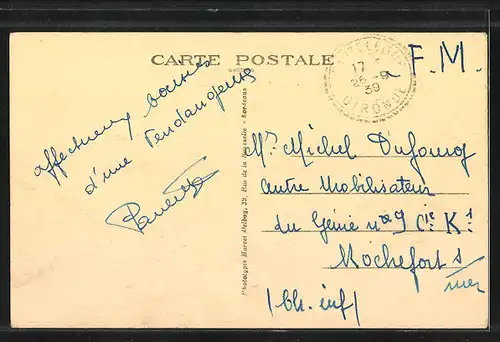 CARTE POSTALE
F.M.
17
26 - 9
39
GIRONDE
affectueux baisers
d'une Vendangeuse
Mr Michel Dufourg
Centre Mobilisateur
du Génie n° 9 Cie K1
Rochefort s/
mer
(Ch. inf)
Phototypie Marcel Delboy, 39, Rue de la - Bordeaux